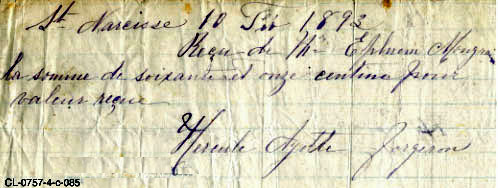 St Narcisse 10 Fév 1893
Reçu de Mr Ephrem
la somme de soixante et onze centins pour
valeur reçue
Hercule Ayotte Forgeron
CL-0757-4-c-085